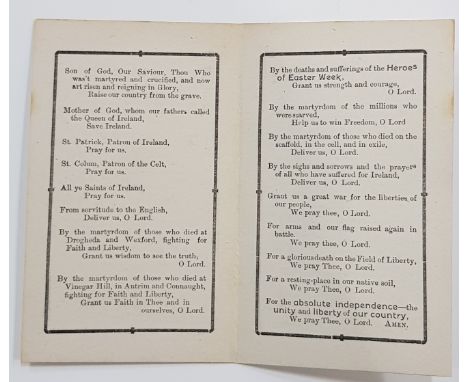 Son of God, Our Saviour, Thou Who
was't martyred and crucified, and now
art risen and reigning in Glory,
Raise our country from the grave.
Mother of God, whom our fathers called
the Queen of Ireland,
Save Ireland.
St. Patrick, Patron of Ireland,
Pray for us.
St. Colum, Patron of the Celt,
Pray for us.
All ye Saints of Ireland,
Pray for us.
From servitude to the English,
Deliver us, O Lord.
By the martyrdom of those who died at
Drogheda and Wexford, fighting for
Faith and Liberty,
Grant us wisdom to see the truth,
O Lord.
By the martyrdom of those who died at
Vinegar Hill, in Antrim and Connaught,
fighting for Faith and Liberty,
Grant us Faith in Thee and in
ourselves, O Lord.
By the deaths and sufferings of the Heroes
of Easter Week,
Grant us strength and courage,
O Lord.
By the martyrdom of the millions who
were starved,
Help us to win Freedom, O Lord
By the martyrdom of those who died on the
scaffold, in the cell, and in exile,
Deliver us, O Lord.
By the sighs and sorrows and the prayers
of all who have suffered for Ireland,
Deliver us, O Lord.
Grant us a great war for the liberties of
our people,
We pray thee, O Lord.
For arms and our flag raised again in
battle.
We pray thee, O Lord.
For a glorious death on the Field of Liberty,
We pray Thee, O Lord.
For a resting-place in our native soil,
We pray Thee, O Lord.
For the absolute independence—the
unity and liberty of our country,
We pray Thee, O Lord. AMEN.